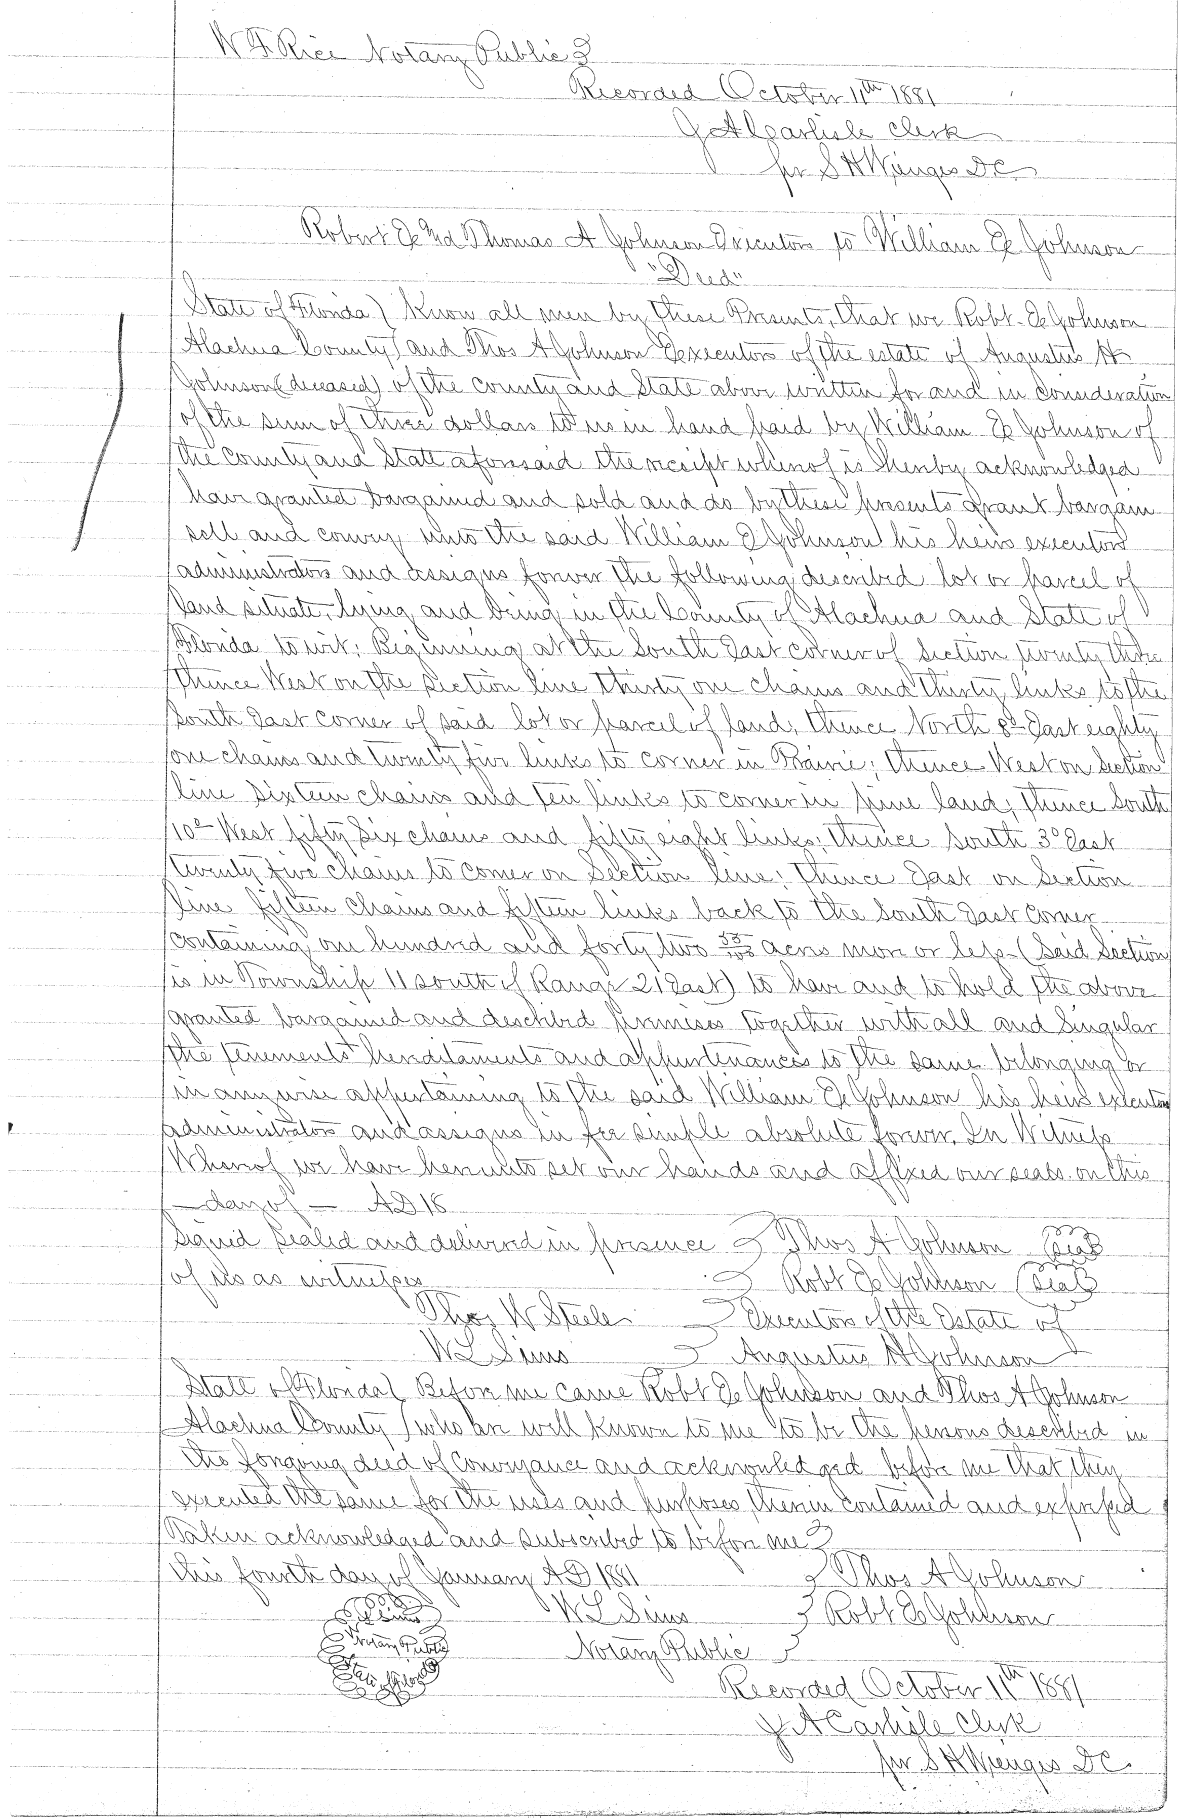 W F Rice Notary Public
Recorded October 11th 1881
J A Carlisle Clerk
per S H Wienges D C
Robert E and Thomas A Johnson Executors to William E Johnson
"Deed"
State of Florida } Know all men by these Presents, that we Robt E Johnson
Alachua County } and Thos A Johnson Executors of the estate of Augustus H
Johnson (deceased) of the county and State above written for and in consideration
of the sum of three dollars to us in hand paid by William E Johnson of
the County and State aforesaid the receipt whereof is hereby acknowledged
have granted bargained and sold and do by these presents grant bargain
sell and convey unto the said William E Johnson his heirs executors
administrators and assigns forever the following described lot or parcel of
land situate, lying and being in the County of Alachua and State of
Florida to wit: Beginning at the South East corner of Section twenty three
thence West on the Section line thirty one chains and thirty links to the
South East corner of said lot or parcel of land; thence North 8° East eighty
one chains and twenty five links to corner in Prairie; thence West on Section
line sixteen chains and ten links to corner in pine land; thence South
10° West fifty six chains and fifty eight links; thence South 3° East
twenty five chains to corner on Section line; thence East on Section
line fifteen chains and fifteen links back to the South East corner
containing one hundred and forty two 55/100 acres more or less (Said Section
is in Township 11 South of Range 21 East) to have and to hold the above
granted bargained and described premises together with all and Singular
the tenements hereditaments and appurtenances to the same belonging or
in any wise appertaining to the said William E Johnson his heirs executors
administrators and assigns in fee simple absolute forever. In Witness
Whereof we have hereunto set our hands and affixed our seals on this
— day of — AD 18
Signed Sealed and delivered in presence } Thos A Johnson (Seal)
of us as witnesses } Robt E Johnson (Seal)
Thos W Steele } Executors of the Estate of
W L Sims } Augustus H Johnson
State of Florida } Before me came Robt E Johnson and Thos A Johnson
Alachua County } who are well known to me to be the persons described in
the forgoing deed of Conveyance and acknowledged before me that they
executed the same for the uses and purposes therein contained and expressed
Taken acknowledged and subscribed to before me }
this fourth day of January AD 1881 } Thos A Johnson
W L Sims } Robt E Johnson
Notary Public }
W L Sims
Notary Public
State of Florida
Recorded October 11th 1881
J A Carlisle Clerk
per S H Wienges D C